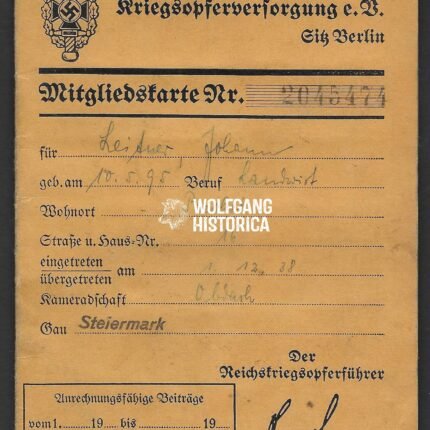 Kriegsopferversorgung e.V.
Sitz Berlin
Mitgliedskarte Nr. 2045474
für Leitner, Johann
geb. am 10.5.95 Beruf Landwirt
Wohnort
WOLFGANG
HISTORICA
Straße u. Haus-Nr. 16
eingetreten
übergetreten am 1. 12. 38
Kameradschaft Obdach
Gau Steiermark
Der
Reichskriegsopferführer
Anrechnungsfähige Beiträge
vom 1. 19 bis 19